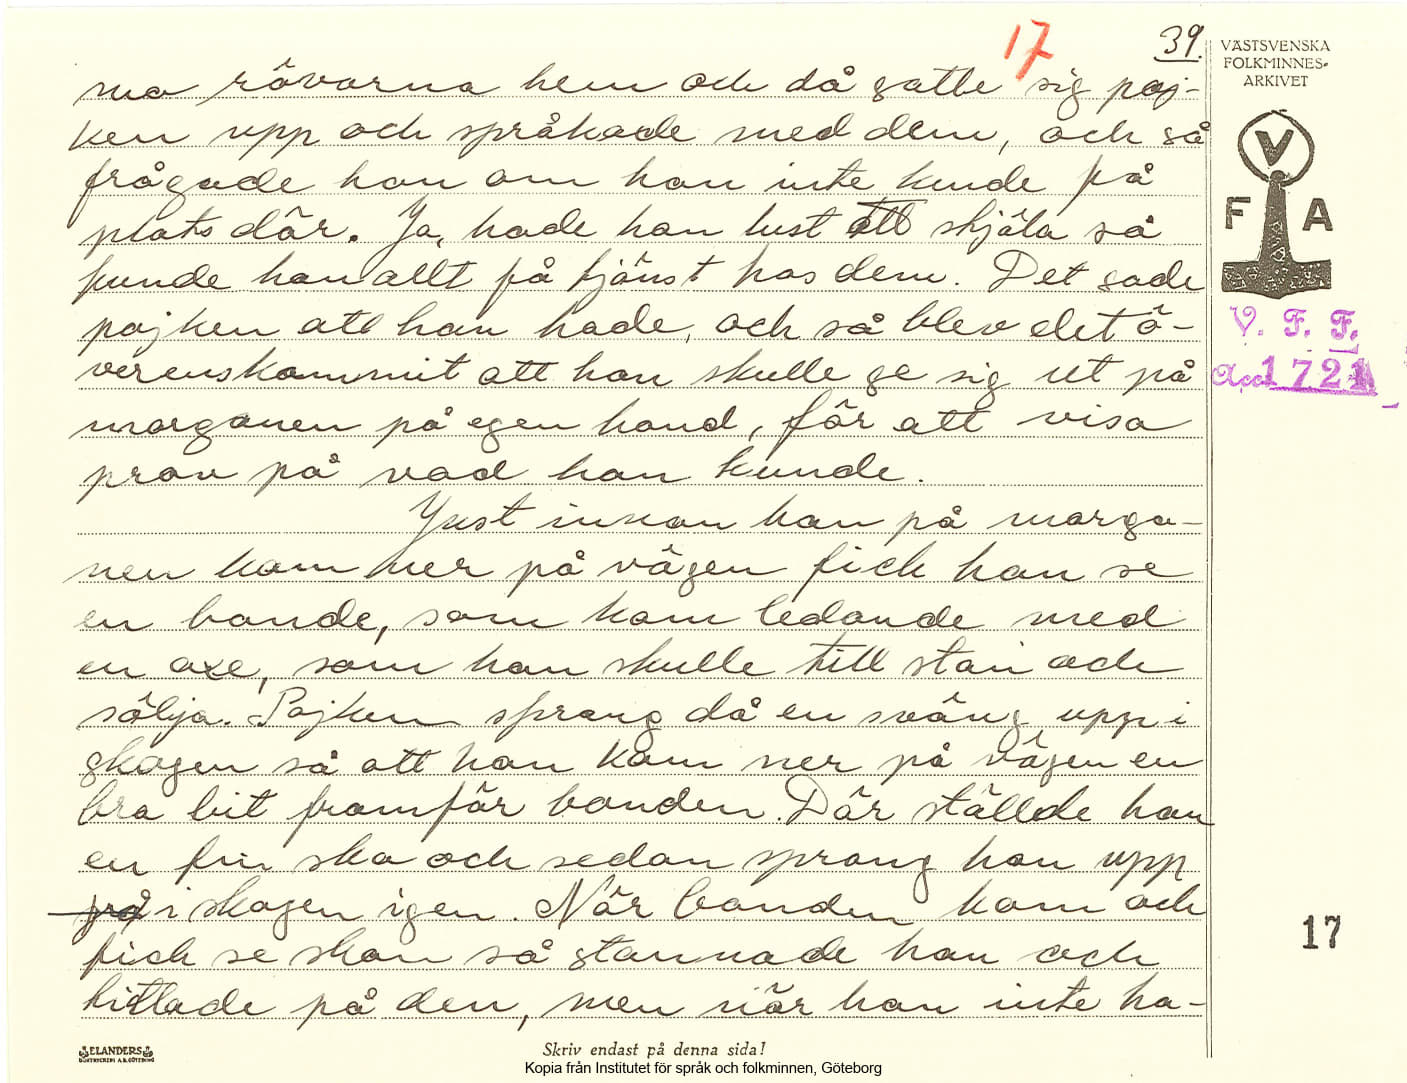 17
39.
VÄSTSVENSKA
FOLKMINNES-
ARKIVET
V
F A
V. F. F.
Acc 1721
mo rövarna hem och då satte sig poj-
ken upp och språkade med dem, och så
frågade han om han inte kunde få
plats där. Ja, hade han lust att stjäla så
kunde han allt få tjänst hos dem. Det sade
pojken att han hade, och så blev det ö-
verenskommit att han skulle ge sig ut på
morgonen på egen hand, för att visa
prov på vad han kunde.
Just innan han på morgo-
nen kom ner på vägen fick han se
en bonde, som kom ledande med
en oxe, som han skulle till stan och
sälja. Pojken sprang då en sväng upp i
skogen så att han kom ner på vägen en
bra bit framför bonden. Där ställde han
en fin sko och sedan sprang han upp
på i skogen igen. När bonden kom och
fick se skon så stannade han och
tittade på den, men när han inte ha-
17
ELANDERS
BOKTRYCKERI A.B. GÖTEBORG
Skriv endast på denna sida!
Kopia från Institutet för språk och folkminnen, Göteborg